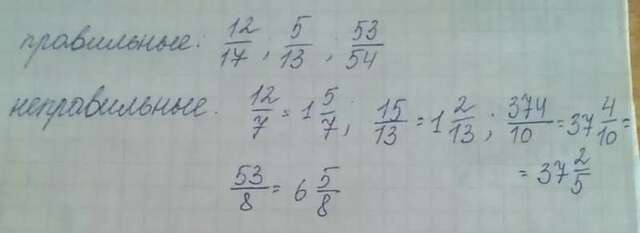 правильные: 12/17; 5/13; 53/54
неправильные. 12/7 = 1 5/7; 15/13 = 1 2/13; 374/10 = 37 4/10 =
= 37 2/5
53/8 = 6 5/8